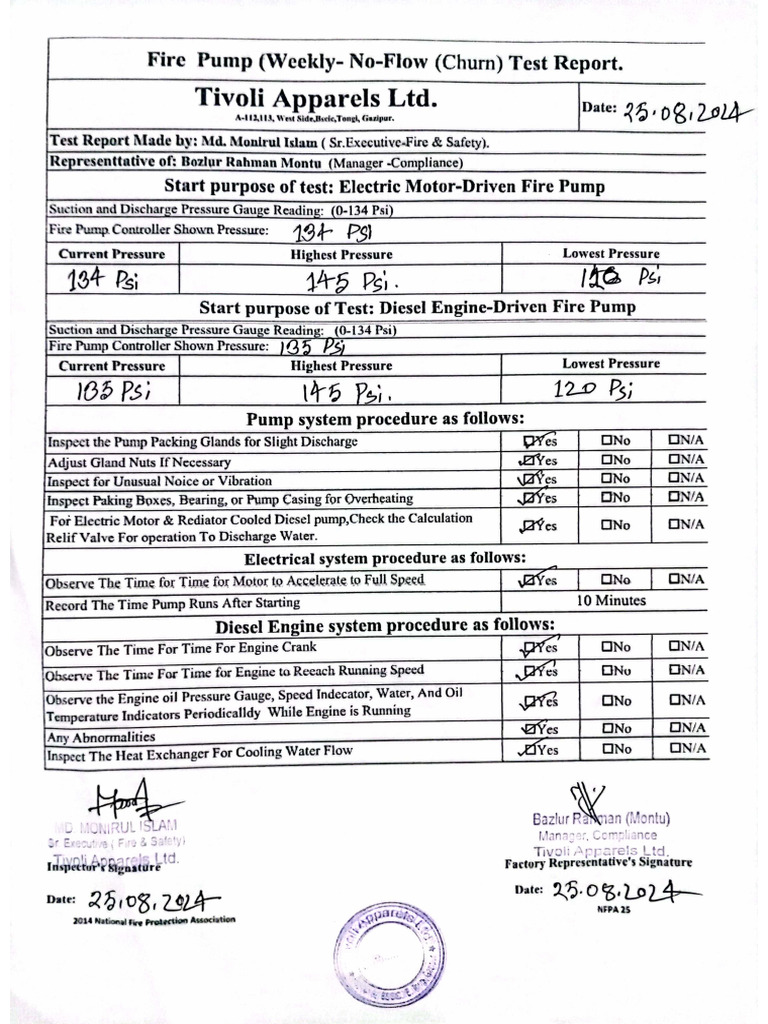 Fire Pump (Weekly- No-Flow (Churn) Test Report.
Tivoli Apparels Ltd.
A-112,113, West Side,Bscic,Tongi, Gazipur.
Date: 25.08.2024
Test Report Made by: Md. Monirul Islam ( Sr.Executive-Fire & Safety).
Representtative of: Bozlur Rahman Montu (Manager -Compliance)
Start purpose of test: Electric Motor-Driven Fire Pump
Suction and Discharge Pressure Gauge Reading: (0-134 Psi)
Fire Pump Controller Shown Pressure: 134 PSI
Current Pressure Highest Pressure Lowest Pressure
134 Psi 145 Psi. Psi
Start purpose of Test: Diesel Engine-Driven Fire Pump
Suction and Discharge Pressure Gauge Reading: (0-134 Psi)
Fire Pump Controller Shown Pressure: 135 Psi
Current Pressure Highest Pressure Lowest Pressure
135 Psi 145 Psi. 120 Psi
Pump system procedure as follows:
Inspect the Pump Packing Glands for Slight Discharge ☑Yes ☐No ☐N/A
Adjust Gland Nuts If Necessary ☑Yes ☐No ☐N/A
Inspect for Unusual Noice or Vibration ☑Yes ☐No ☐N/A
Inspect Paking Boxes, Bearing, or Pump Casing for Overheating ☑Yes ☐No ☐N/A
For Electric Motor & Rediator Cooled Diesel pump,Check the Calculation
Relif Valve For operation To Discharge Water. ☑Yes ☐No ☐N/A
Electrical system procedure as follows:
Observe The Time for Time for Motor to Accelerate to Full Speed ☑Yes ☐No ☐N/A
Record The Time Pump Runs After Starting 10 Minutes
Diesel Engine system procedure as follows:
Observe The Time For Time For Engine Crank ☑Yes ☐No ☐N/A
Observe The Time For Time for Engine to Reeach Running Speed ☑Yes ☐No ☐N/A
Observe the Engine oil Pressure Gauge, Speed Indecator, Water, And Oil
Temperature Indicators Periodicalldy While Engine is Running ☑Yes ☐No ☐N/A
Any Abnormalities ☑Yes ☐No ☐N/A
Inspect The Heat Exchanger For Cooling Water Flow ☑Yes ☐No ☐N/A
MD. MONIRUL ISLAM
Sr. Executive ( Fire & Safety)
Tivoli Apparels Ltd.
Inspector's Signature
Date: 25.08.2024
2014 National Fire Protection Association
Bazlur Rahman (Montu)
Manager, Compliance
Tivoli Apparels Ltd.
Factory Representative's Signature
Date: 25.08.2024
NFPA 25
Tivoli Apparels Ltd.